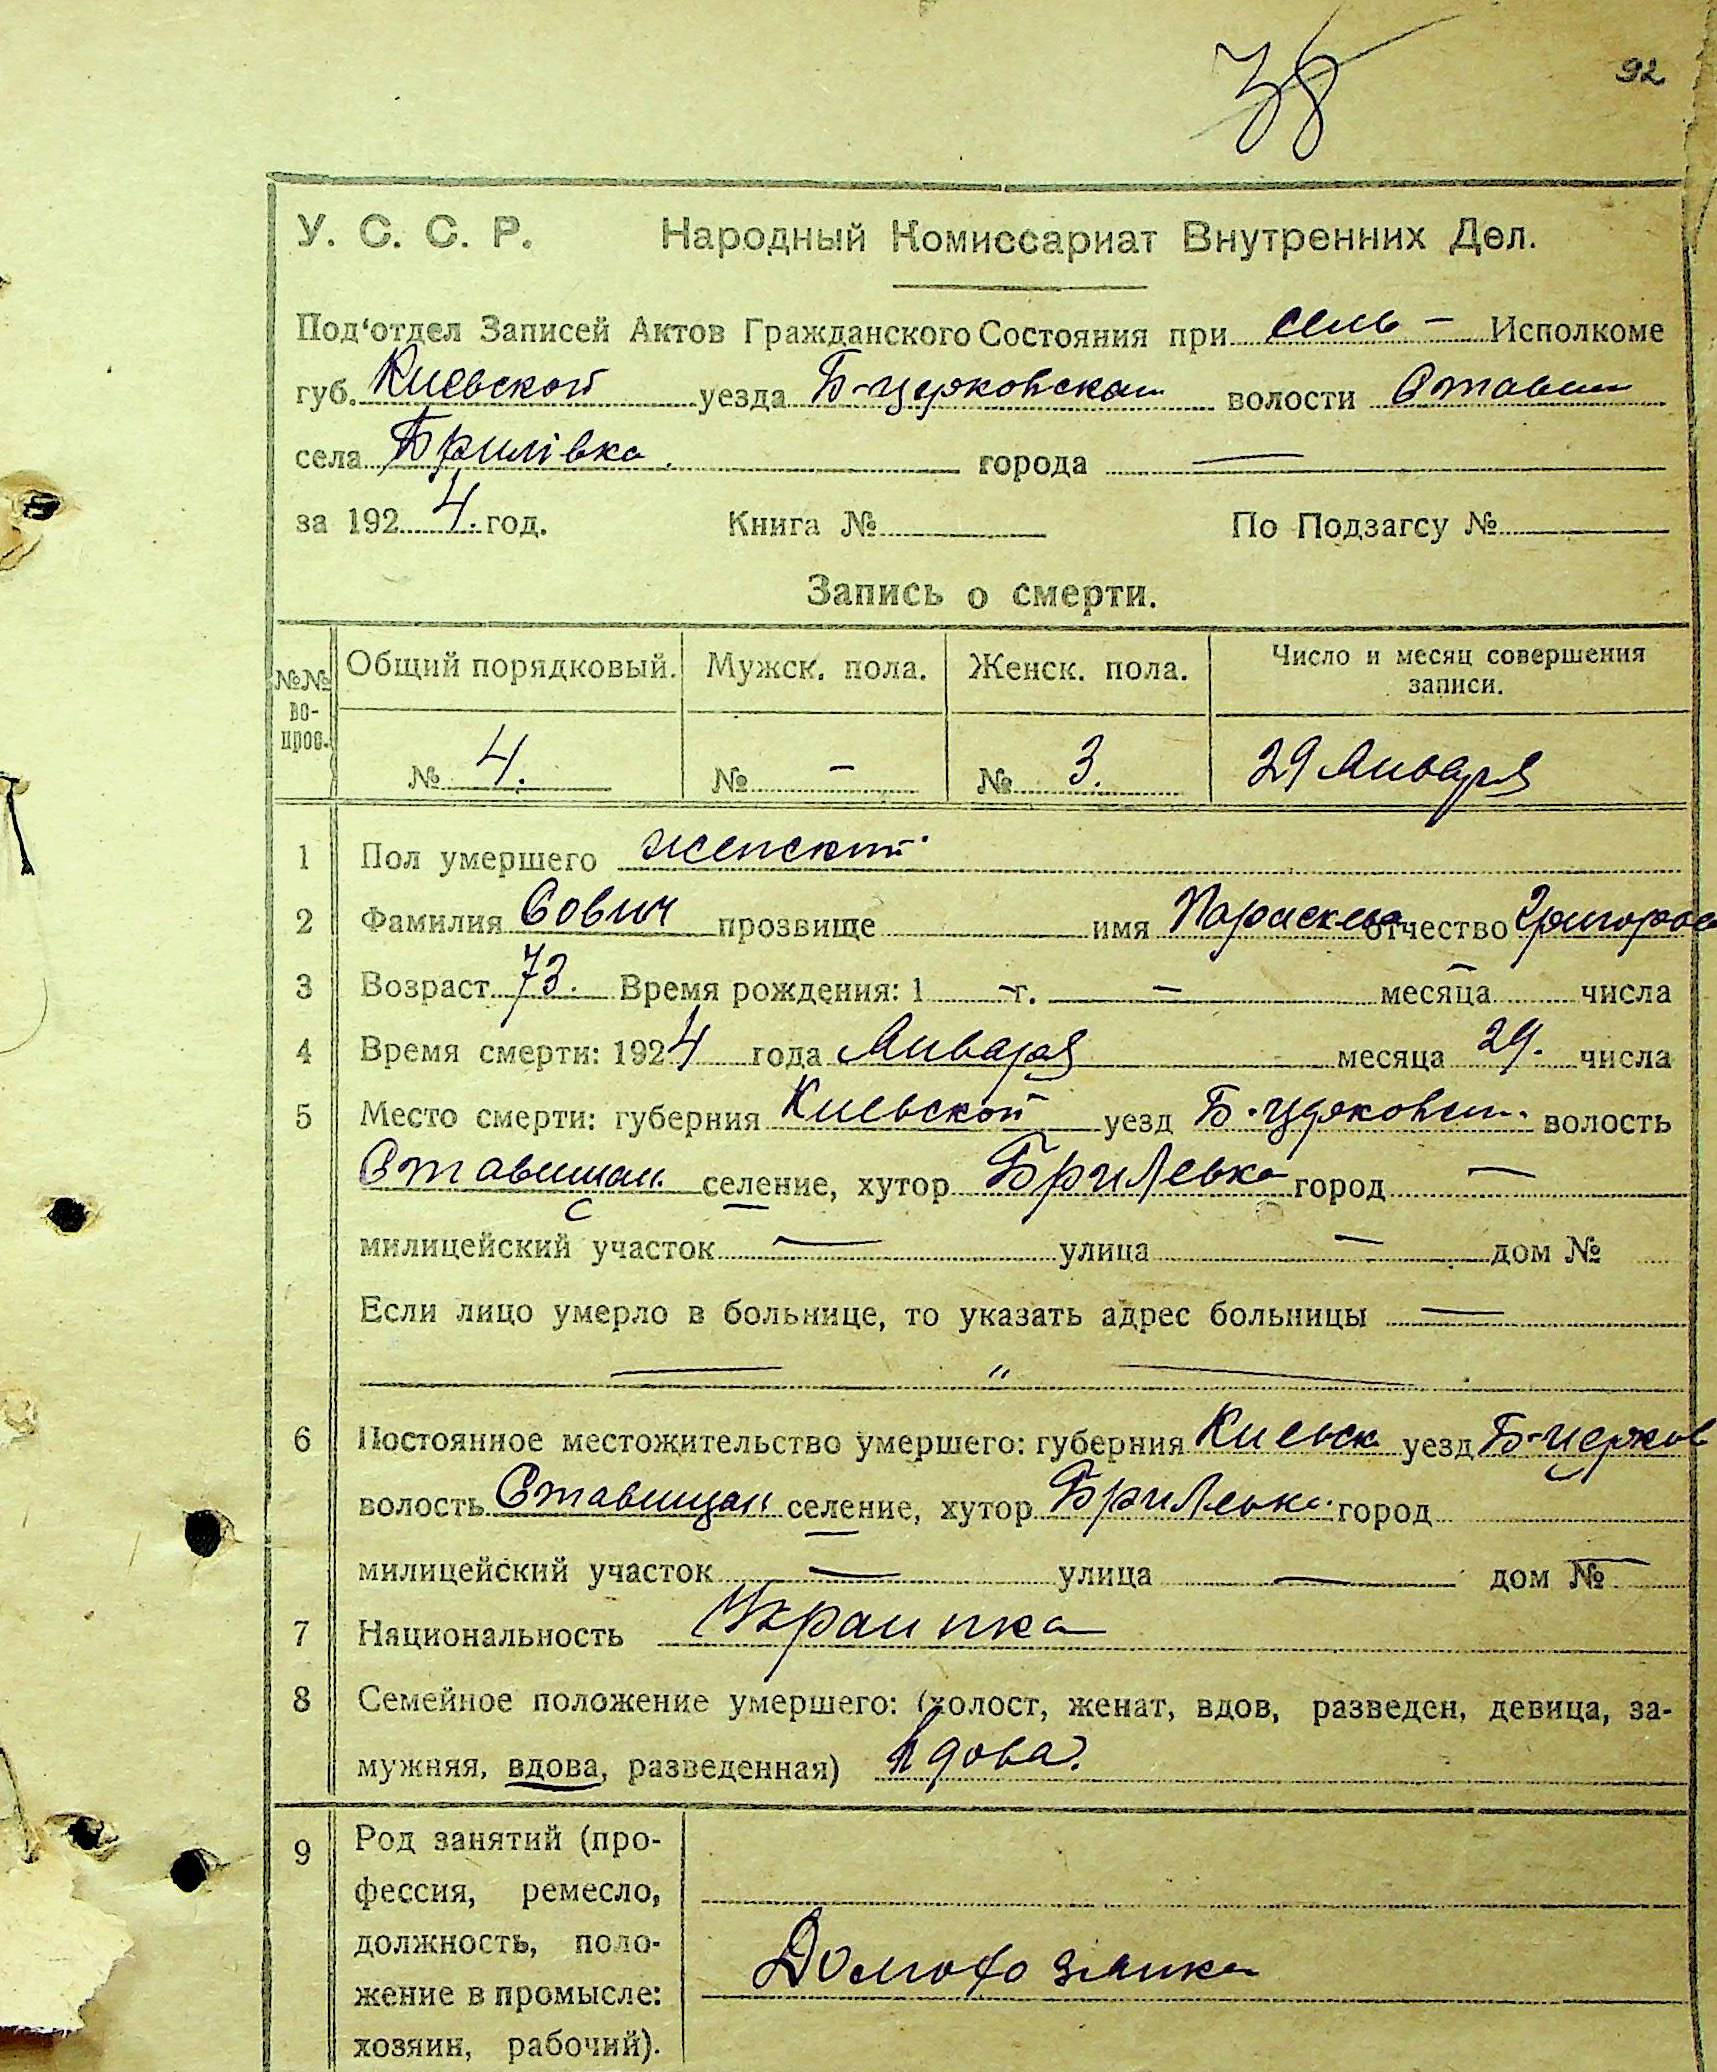 38
92
У. С. С. Р. Народный Комиссариат Внутренних Дел.
Под'отдел Записей Актов Гражданского Состояния при сель - Исполкоме
губ. Киевской уезда Б-церковской волости Ставищ
села Брилівка города —
за 1924. год. Книга № По Подзагсу №
Запись о смерти.
№№ во-прос. Общий порядковый. Мужск. пола. Женск. пола. Число и месяц совершения записи.
№ 4. № - № 3. 29 Января
1 Пол умершего женский
2 Фамилия Сович прозвище имя Параскева отчество Григоров
3 Возраст 73. Время рождения: 1 - г. - месяца - числа
4 Время смерти: 1924 года Января месяца 29. числа
5 Место смерти: губерния Киевской уезд Б.церковск. волость
Ставищан. селение, хутор Брилевка город —
милицейский участок — улица — дом №
Если лицо умерло в больнице, то указать адрес больницы —
— " —
6 Постоянное местожительство умершего: губерния Киевск уезд Б-церков
волость Ставищан селение, хутор Брилевка город
милицейский участок — улица — дом № —
7 Национальность Украинка
8 Семейное положение умершего: (холост, женат, вдов, разведен, девица, за-
мужняя, вдова, разведенная) вдова.
9 Род занятий (про-
фессия, ремесло,
должность, поло-
жение в промысле:
хозяин, рабочий).
Домохозяйка